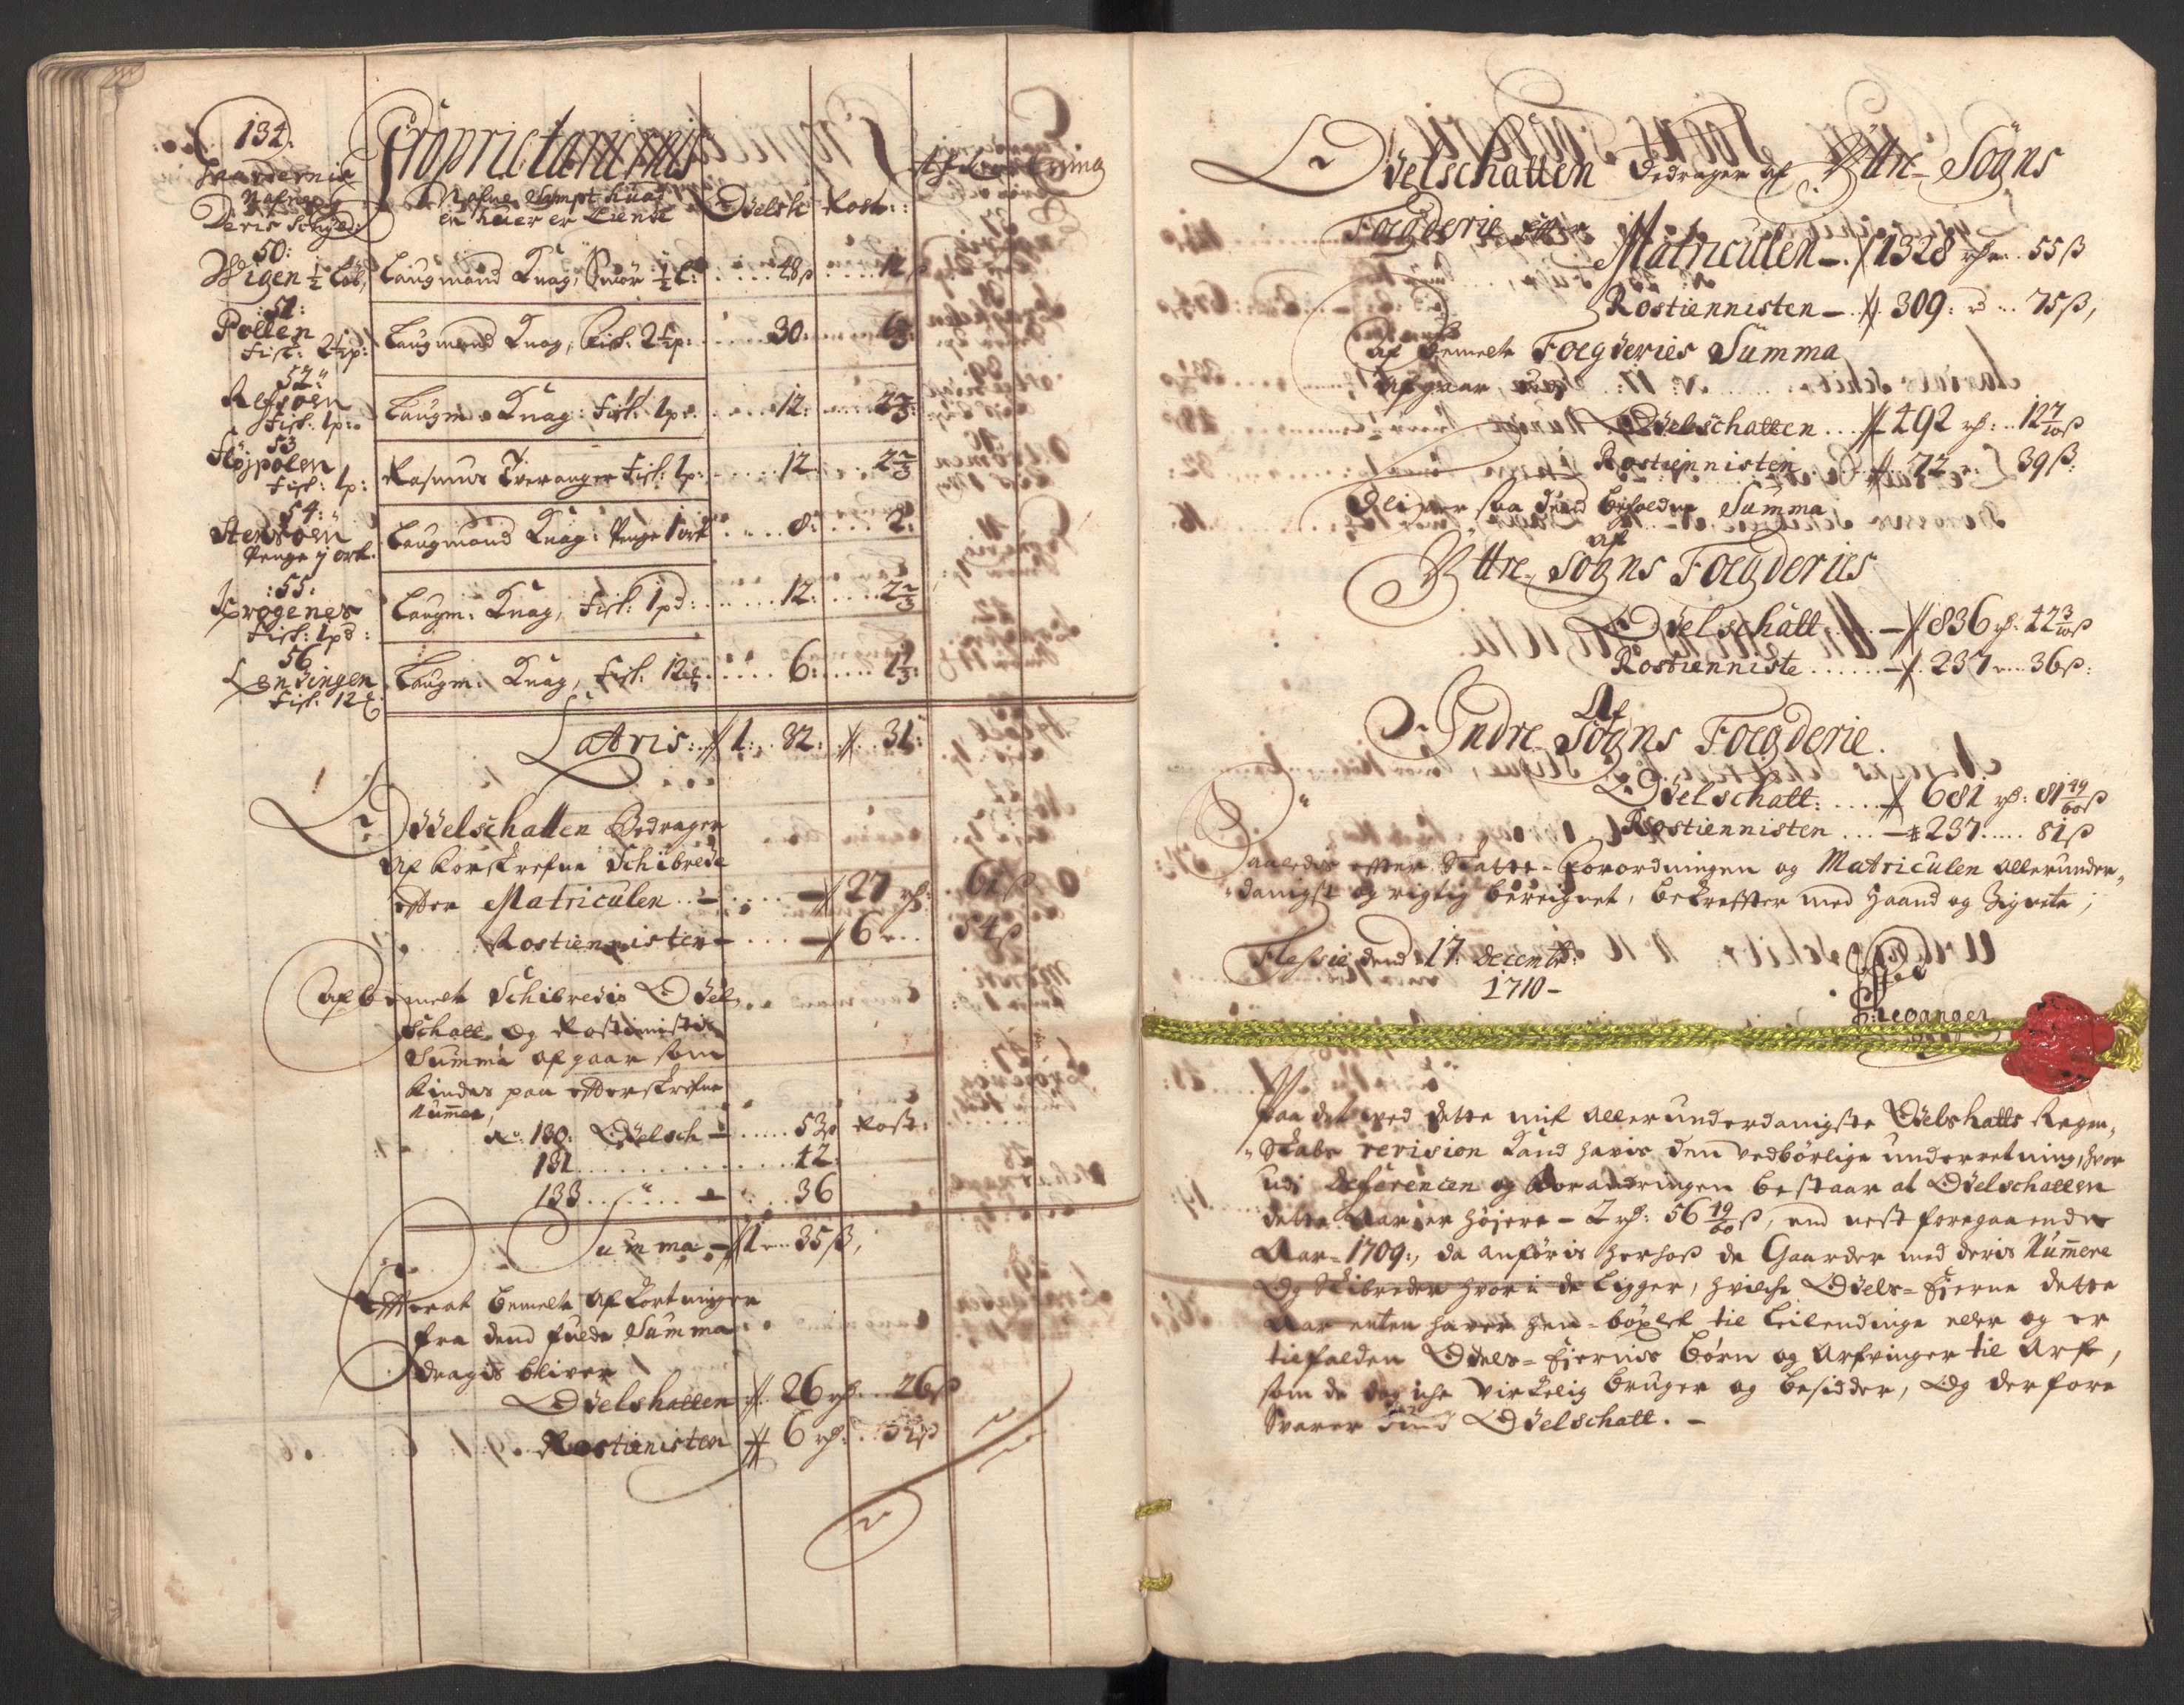 134:
Gaardernis
Nafne og
Deris Schyld
Proprietarernis
Nafne, Sampt huad
en huer er Eiende
Odelsk
Rost:
50:
Wigen ½ Løb,
Laugmand Knag, Smør ½ L:
48ß
12
51:
Pollen
Fisk: 2½p:
Laugmand Knag, Fisk: 2½p:
30:
52:
Refsøen
Fisk: 1p:
Laugm: Knag: Fisk: 1p:
12:
2⅔
53
Fløjpolen
Fisk: 1p:
Rasmus Tveranger Fisk: 1p:
12:
2⅔
54:
Stensøen
Penge j ort.
Laugmand Knag: Penge 1 ort
8:
2:
:55:
Krogenes
Fisk: 1pd:
Laugm: Knag, Fisk: 1pd:
12:
2⅔
56
Lendingen
Fisk. 12
Laugm: Knag, Fisk: 12
6:
1⅓:
Latris: 1: 32: 31:
Odelschatten Bedrager
Af forskrefne Schibrede
efter Matriculen 27 rd: 61ß
Rostiennisten 6 54ß
Af bemelte Schibredis Odel
Schatt og Rostienisten
Summa afgaar som
findes paa efterskrefne
Numer,
No: 130: Odelsch 53ß Rost:
131 42:
133 " 36
Summa 1 35ß,
Efterat bemelte Afkortninger
fra dend fulde Summa
dragis bliver
Odelshatten 26 rd: 26ß
Rostienisten 6 rd:
Odelschatten Bedrager af Yttre Sogns
Fogderie efter
Matriculen 1328 rd 55ß
Rostiennisten 309: 75ß,
Af bemelte Foegderies Summa
Afgaar, udj
Odelschatten 492 rd: 12 7/10ß
Rostiennisten 72: 39ß:
Bliver saa dend beholdne Summa
Af
Yttre Sogns Foegderies
Odelschatt 836 rd: 42 3/10ß
Rostienniste 237 36ß:
Af
Indre Sogns Foegderie.
Odelschatt: 681 rd: 81 49/60ß
Rostiennisten 237 81ß
Saaledis efter Skatte-Forordningen og Matriculen allerunder
danigst og rigtig beregnet, bekrefter med Haand og Signete;
Flessie dend 17: Decembr:
1710
Paa det ved dette mit allerunderdanigste Odelshatts Regen
skabs revision kand havis den vedbørlige underretning, hvor
udj Deferencen og forandringen bestaar at Odelschatten
dette Aar er højere 2 rd: 56 19/60ß, end nest foregaaende
Aar 1709:, da anføris herhos de Gaarder med deris Numere
Og Skibreder hvor i de ligger, hvilche Odels-Ejerne dette
Aar enten haver hen-bøxlet til Leilendinge eller og er
tilfalden Odels-Ejernis Børn og Arfvinger til Arf,
som de dog iche virkelig bruger og besidder, og derfore
Svarer sind Odelschatt.